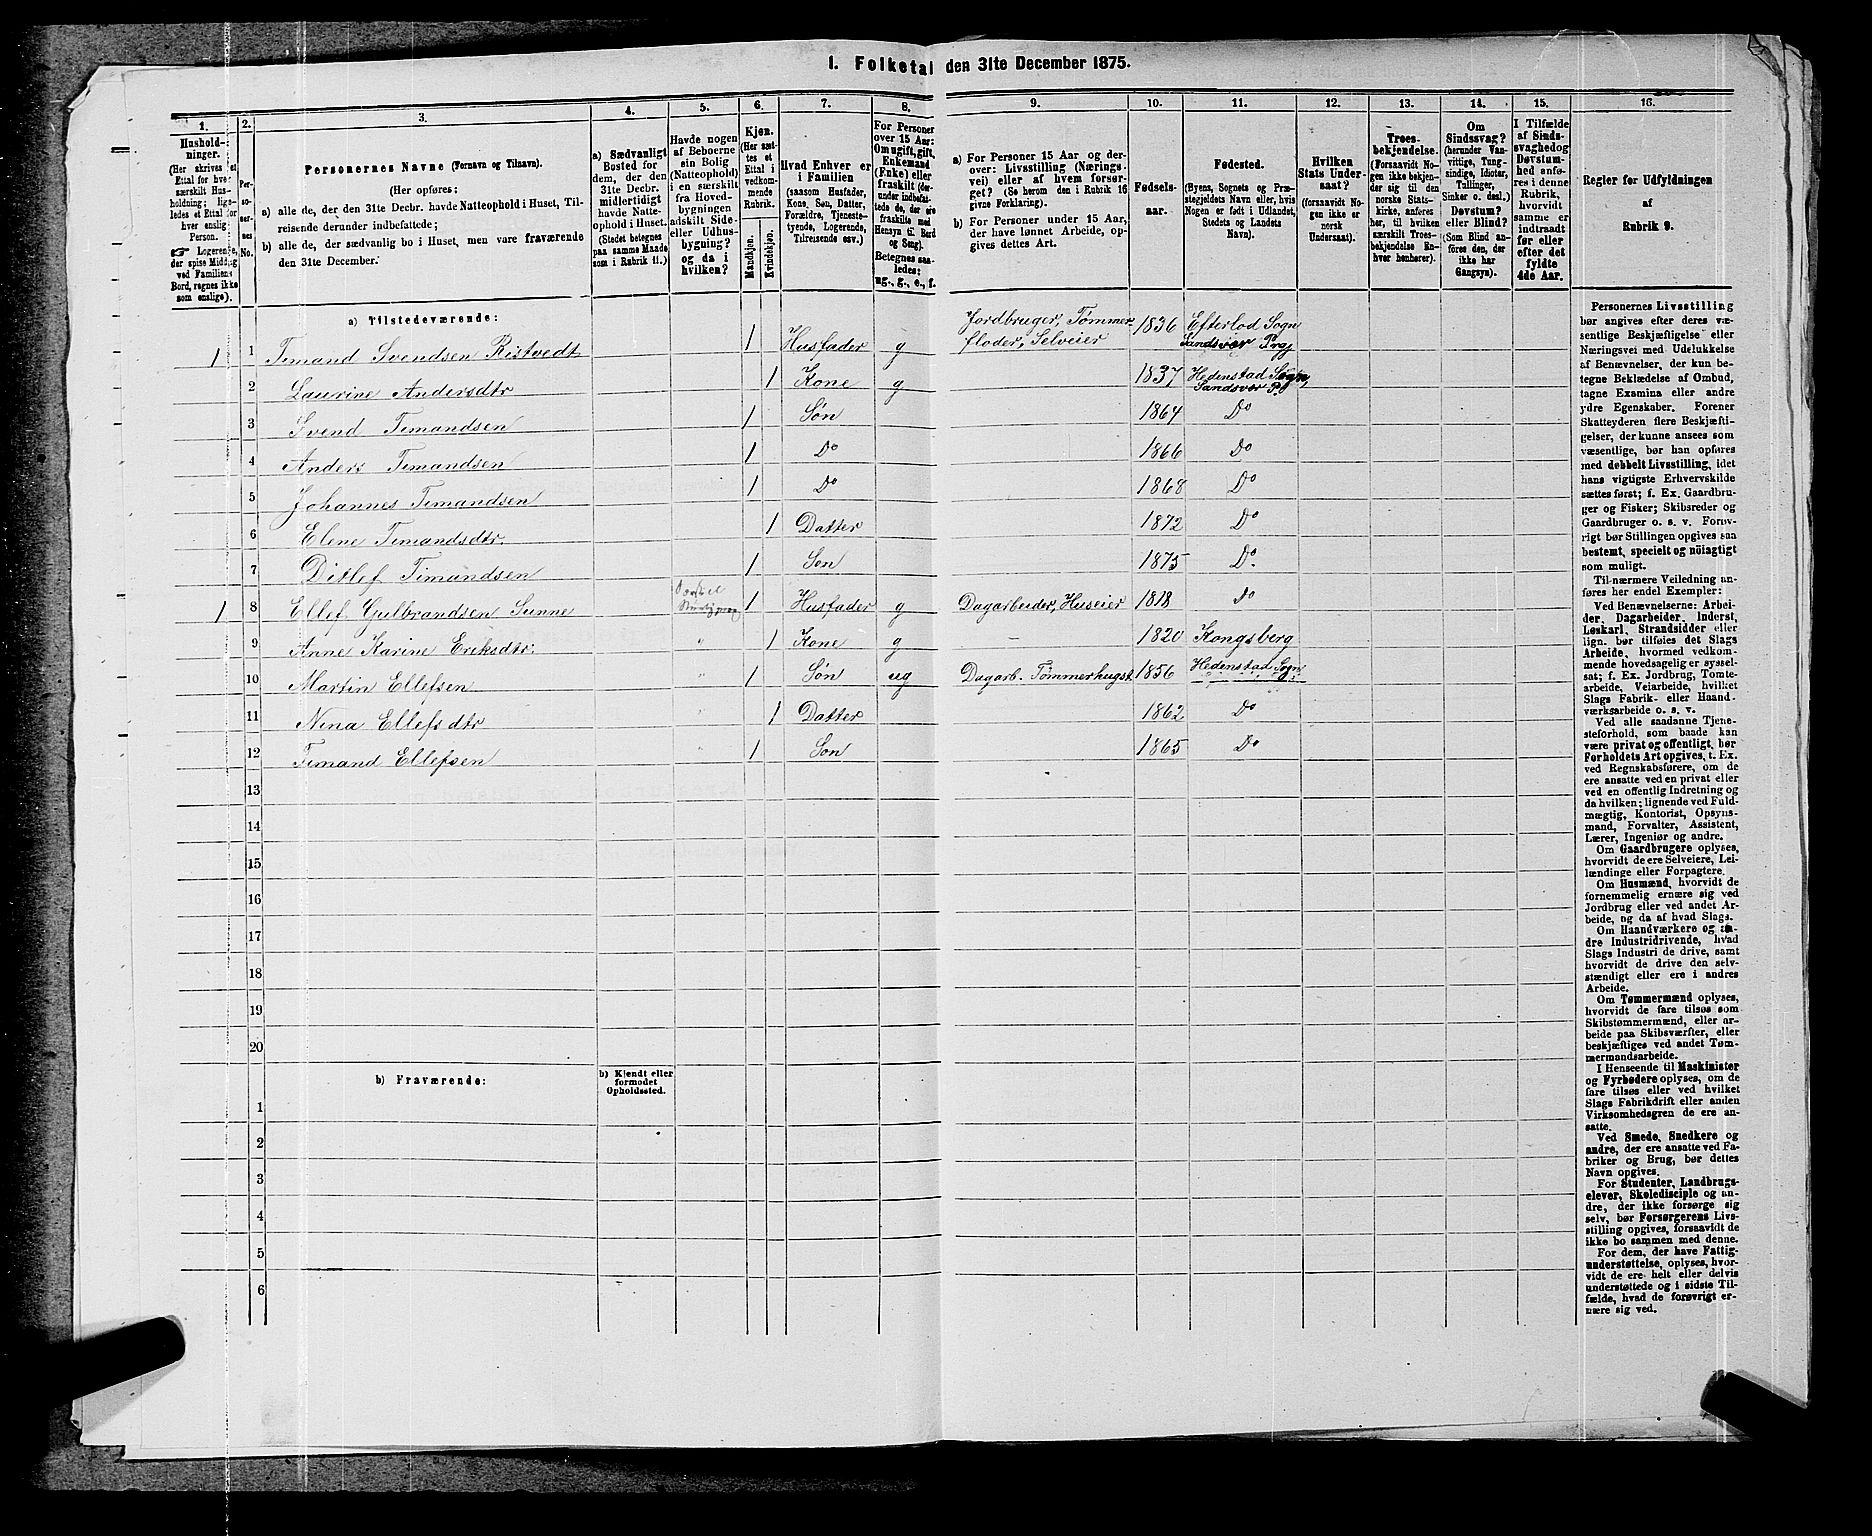 1. Folketal den 31te December 1875.
1.
Hushold-
ninger.
(Her skrives et
Ettal for hver
særskilt Hus-
holdning; lige-
ledes et Ettal for
hver enslig
Person.
Logerende,
der spise Middag
ved Familiens
Bord, regnes ikke
som enslige).
2.
Per-
so-
ner-
nes
No.
3.
Personernes Navne (Fornavn og Tilnavn).
(Her opføres:
a) alle de, der den 31te Decbr. havde Natteophold i Huset, Til-
reisende derunder indbefattede;
b) alle de, der sædvanlig bo i Huset, men vare fraværende
den 31te December.
4.
a) Sædvanligt
Bosted for
dem, der den
31te Decbr.
midlertidigt
havde Natte-
ophold i Huset.
(Stedet betegnes
paa samme Maade
som i Rubrik 11.)
5.
Havde nogen
af Beboerne
sin Bolig
(Natteophold)
i en særskilt
fra Hoved-
bygningen
adskilt Side-
eller Udhus-
bygning?
og da i
hvilken?
6.
Kjøn.
(Her sæt-
tes et
Ettal i
vedkom-
mende
Rubrik.
Mandkjøn.
Kvindekjøn.
7.
Hvad Enhver er
i Familien
(saasom Husfader,
Kone, Søn, Datter,
Forældre, Tjeneste-
tyende, Logerende,
Tilreisende osv.)
8.
For Personer
over 15 Aar:
Om ugift, gift,
Enkemand
(Enke) eller
fraskilt (der-
under indbefat-
tede de, der ere
fraskilte med
Hensyn til Bord
og Seng).
Betegnes saa-
ledes:
ug., g., e., f.
9.
a) For Personer 15 Aar og der-
over: Livsstilling (Nærings-
vei) eller af hvem forsør-
get? (Se herom den i Rubrik 16
givne Forklaring).
b) For Personer under 15 Aar,
der have lønnet Arbeide, op-
gives dettes Art.
10.
Fødsels-
aar.
11.
Fødested.
(Byens, Sognets og Præ-
stegjeldets Navn eller, hvis
Nogen er født i Udlandet,
Stedets og Landets
Navn).
12.
Hvilken
Stats Under-
saat?
(forsaavidt No-
gen ikke er
norsk
Undersaat).
13.
Troes-
bekjendelse.
(Forsaavidt No-
gen ikke bekjen-
der sig til den
norske Stats-
kirke, anføres
her, til hvilken
særskilt Troes-
bekjendelse En-
hver henhører).
14.
Om
Sindssvag?
(herunder Van-
vittige, Tung-
sindige, Idioter,
Tullinger,
Sinker o. desl.)
Døvstum?
eller Blind?
(Som Blind an-
føres den, der
ikke har
Gangsyn).
15.
I Tilfælde
af Sinds-
svaghed og
Døvstum-
hed anfø-
res i denne
Rubrik,
hvorvidt
samme er
indtraadt
før eller
efter det
fyldte
4de Aar.
16.
Regler for Udfyldningen
af
Rubrik 9.
a) Tilstedeværende:
1 1 Timand Svendsen Ristvedt 1 Husfader g Jordbruger, Tømmer- 1836 Efterlod Sogn
fløder, Selveier Sandsvær Prgj
2 Laurine Andersdtr 1 Kone g 1837 Hedenstad Sogn,
Sandsvær P.gj
3 Svend Timandsen 1 Søn 1864 Do
4 Anders Timandsen 1 Do 1866 Do
5 Johannes Timandsen 1 Do 1868 Do
6 Elene Timandsdtr. 1 Datter 1872 Do
7 Ditlef Timandsen 1 Søn 1875 Do.
1 8 Ellef Gulbrandsen Sunne 1 Husfader g Dagarbeider, Huseier 1818 Do
9 Anne Karine Eriksdtr. " 1 Kone g - 1820 Kongsberg
10 Martin Ellefsen " 1 Søn ug Dagarb. Tømmerhugst. 1856 Hedenstad Sogn
11 Nina Ellefsdtr " 1 Datter 1862 Do
12 Timand Ellefsen " 1 Søn 1865 Do
13
14
15
16
17
18
19
20
b) Fraværende:
b) Kjendt eller
formodet
Opholdssted.
1
2
3
4
5
6
Personernes Livsstilling
bør angives efter deres væ-
sentlige Beskjæftigelse eller
Næringsvei med Udelukkelse
af Benævnelser, der kun be-
tegne Beklædelse af Ombud,
tagne Examina eller andre
ydre Egenskaber. Forener
Skatteyderen flere Beskjæfti-
gelser, der kunne ansees som
væsentlige, bør han opføres
med dobbelt Livsstilling, idet
hans vigtigste Erhvervskilde
sættes først; f. Ex. Gaardbru-
ger og Fisker; Skibsreder og
Gaardbruger o. s. v. Forøv-
rigt bør Stillingen opgives saa
bestemt, specielt og nöiagtigt
som muligt.
Til nærmere Veiledning an-
føres her endel Exempler:
Ved Benævnelserne: Arbei-
der, Dagarbeider, Inderst,
Løskarl, Strandsidder eller
lign. bør tilføies det Slags
Arbeide, hvormed vedkom-
mende hovedsagelig er syssel-
sat; f. Ex. Jordbrug, Tomte-
arbeide, Veiarbeide, hvilket
Slags Fabrik- eller Haand-
værksarbeide o. s. v.
Ved alle saadanne Tjene-
steforhold, som baade kan
være privat og offentligt, bør
Forholdets Art opgives, t. Ex.
ved Regnskabsførere, om de
ere ansatte ved en privat eller
ved en offentlig Indretning og
da hvilken; lignende ved Fuld-
mægtig, Kontorist, Opsyns-
mand, Forvalter, Assistent,
Lærer, Ingeniør og andre.
Om Gaardbrugere oplyses,
hvorvidt de ere Selveiere, Lei-
lændinge eller Forpagtere.
Om Husmænd, hvorvidt de
fornemmelig ernære sig ved
Jordbrug eller ved andet Ar-
beide, og da af hvad Slags.
Om Haandværkere og an-
dre Industridrivende, hvad
Slags Industri de drive, samt
hvorvidt de drive den selv-
stændigt eller ere i andres
Arbeide.
Om Tømmermænd oplyses,
hvorvidt de fare tilsøs som
Skibstømmermænd, eller ar-
beide paa Skibsværfter, eller
beskjæftiges ved andet Tøm-
mermandsarbeide.
I Henseende til Maskinister
og Fyrbødere oplyses, om de
fare tilsøs eller ved hvilket
Slags Fabrikdrift eller anden
Virksomhedsgren de ere an-
satte.
Ved Smede, Snedkere og
andre, der ere ansatte ved Fa-
briker og Brug, bør dettes
Navn opgives.
For Studenter, Landbrugs-
elever, Skoledisciple og an-
dre, der ikke forsørge sig
selv, bør Forsørgerens Livs-
stilling opgives, forsaavidt de
ikke bo sammen med denne.
For dem, der have Fattig-
understøttelse, oplyses, hvor-
vidt de ere helt eller delvis
understøttede og i sidste Til-
fælde, hvad de forøvrigt er-
nære sig ved.